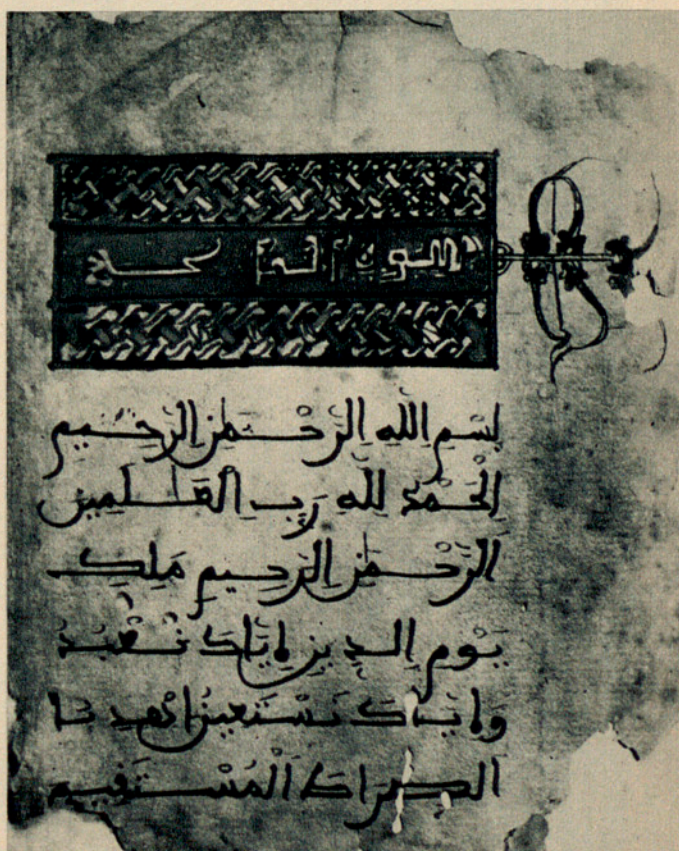 بِسْمِ اللهِ الرَّحْمَٰنِ الرَّحِيمِ
الْحَمْدُ لِلهِ رَبِّ الْعَٰلَمِينَ
الرَّحْمَٰنِ الرَّحِيمِ مَلِكِ
يَوْمِ الدِّينِ إِيَّاكَ نَعْبُدُ
وَإِيَّاكَ نَسْتَعِينُ اهْدِنَا
الصِّرَاطَ الْمُسْتَقِيمَ